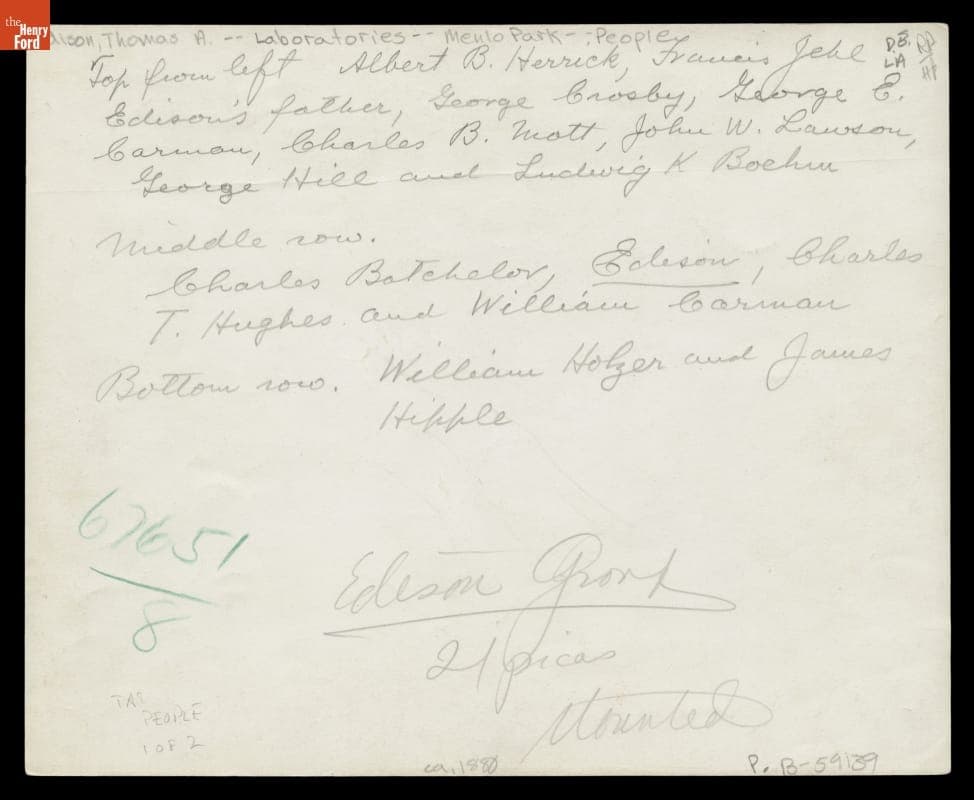 the
Henry
Ford
dison, Thomas A. -- Laboratories -- Menlo Park -- People
Top from left Albert B. Herrick, Francis Jehl
D.B.
LA
Edison's father, George Crosby, George E.
Carman, Charles B. Mott, John W. Lawson,
George Hill and Ludwig K Boehm
Middle row.
Charles Batchelor, Edison, Charles
T. Hughes and William Carman
Bottom row. William Holzer and James
Hipple
67651
8
Edison Group
21 picas
Mounted
PEOPLE
1 OF 2
ca. 1880
P. B-59139